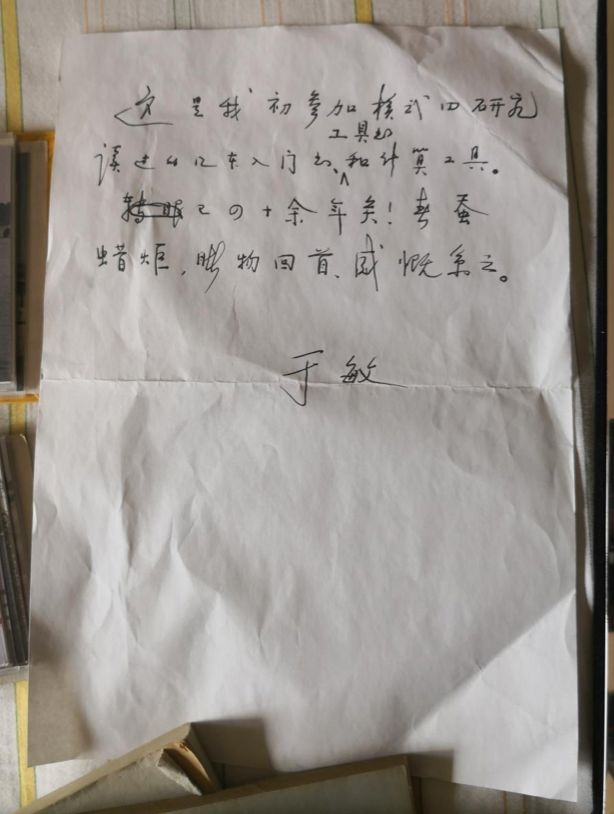 这是我初参加模式的研究
工具书
读过的几本入门书、和计算工具。
转眼已四十余年矣！春蚕
蜡炬，睹物回首，感慨系之。
于敏